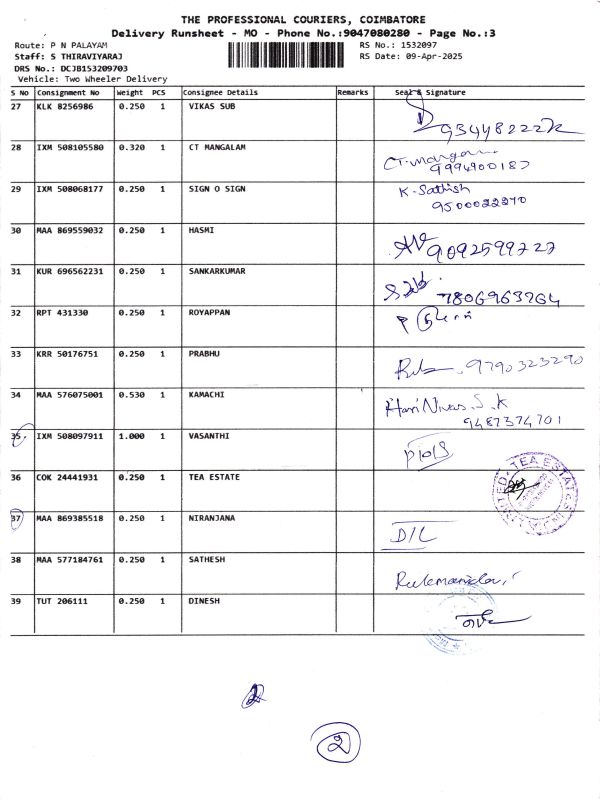 THE PROFESSIONAL COURIERS, COIMBATORE
Delivery Runsheet - MO - Phone No.:9047080280 - Page No.:3
Route: P N PALAYAM
Staff: S THIRAVIYARAJ
DRS No.: DCJB153209703
Vehicle: Two Wheeler Delivery
RS No.: 1532097
RS Date: 09-Apr-2025
S No Consignment No Weight PCS Consignee Details Remarks Seal & Signature
27 KLK 8256986 0.250 1 VIKAS SUB
28 IXM 508105580 0.320 1 CT MANGALAM CT. Mangam
9994900187
29 IXM 508068177 0.250 1 SIGN O SIGN K. Sathish
9500022270
30 MAA 869559032 0.250 1 HASMI 9092599727
31 KUR 696562231 0.250 1 SANKARKUMAR 7806963764
32 RPT 431330 0.250 1 ROYAPPAN
33 KRR 50176751 0.250 1 PRABHU 9790323290
34 MAA 576075001 0.530 1 KAMACHI Hari Nivas. S. K
9487374701
35 IXM 508097911 1.000 1 VASANTHI
36 COK 24441931 0.250 1 TEA ESTATE
37 MAA 869385518 0.250 1 NIRANJANA D/L
38 MAA 577184761 0.250 1 SATHESH
39 TUT 206111 0.250 1 DINESH
2